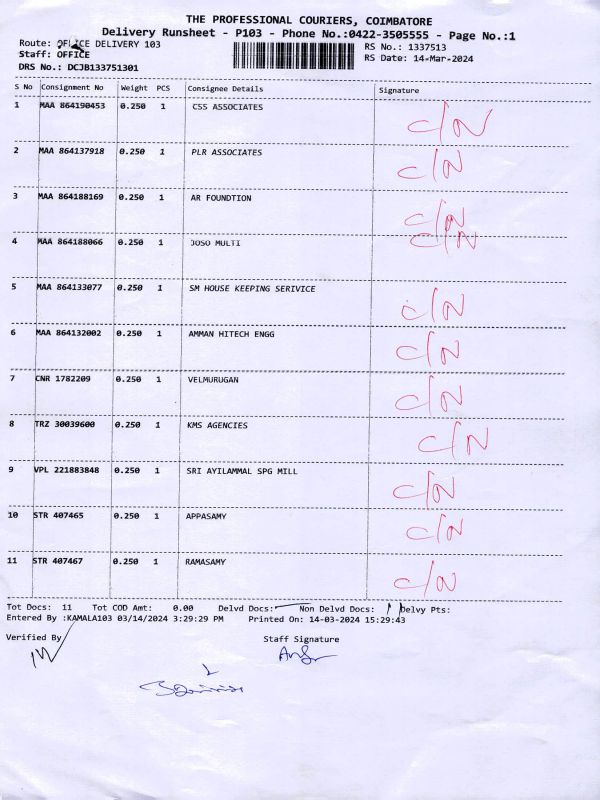 THE PROFESSIONAL COURIERS, COIMBATORE
Delivery Runsheet - P103 - Phone No.:0422-3505555 - Page No.:1
Route: OFFICE DELIVERY 103 RS No.: 1337513
Staff: OFFICE RS Date: 14-Mar-2024
DRS No.: DCJB133751301
S No Consignment No Weight PCS Consignee Details Signature
1 MAA 864190453 0.250 1 CSS ASSOCIATES C/N
2 MAA 864137918 0.250 1 PLR ASSOCIATES C/N
3 MAA 864188169 0.250 1 AR FOUNDTION C/N
4 MAA 864188066 0.250 1 JOSO MULTI C/N
5 MAA 864133077 0.250 1 SM HOUSE KEEPING SERIVICE C/N
6 MAA 864132002 0.250 1 AMMAN HITECH ENGG C/N
7 CNR 1782209 0.250 1 VELMURUGAN C/N
8 TRZ 30039600 0.250 1 KMS AGENCIES C/N
9 VPL 221883848 0.250 1 SRI AYILAMMAL SPG MILL C/N
10 STR 407465 0.250 1 APPASAMY C/N
11 STR 407467 0.250 1 RAMASAMY C/N
Tot Docs: 11 Tot COD Amt: 0.00 Delvd Docs: Non Delvd Docs: 11 Delvy Pts:
Entered By :KAMALA103 03/14/2024 3:29:29 PM Printed On: 14-03-2024 15:29:43
Verified By Staff Signature